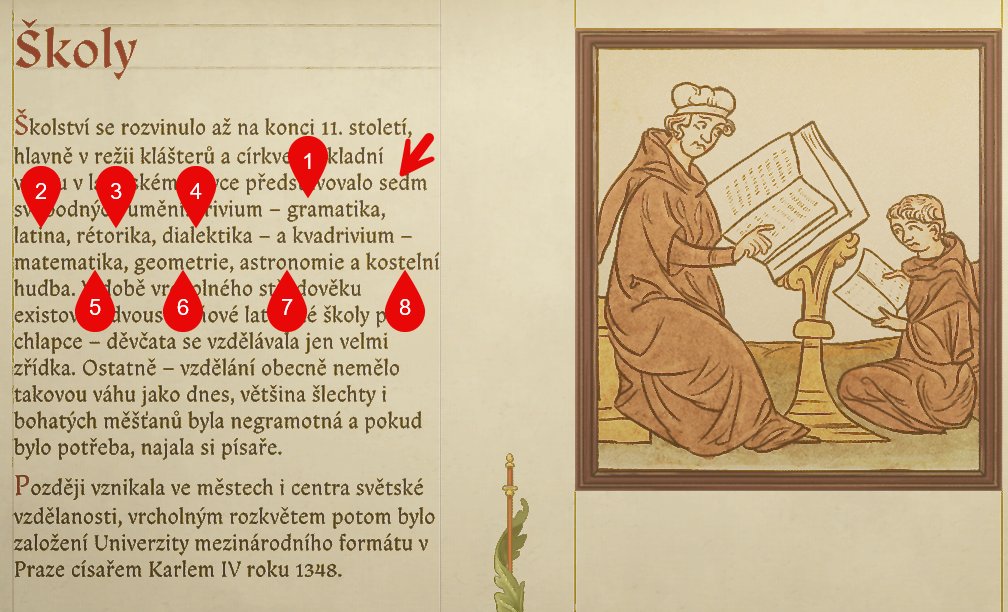 Školy
Školství se rozvinulo až na konci 11. století,
hlavně v režii klášterů a kladní
v předs vovalo sedm
umění rivium – gramatika,
latina, rétorika, dialektika – a kvadrivium –
matematika, geometrie, astronomie a kostelní
hudba. době
školy
chlapce – děvčata se vzdělávala jen velmi
zřídka. Ostatně – vzdělání obecně nemělo
takovou váhu jako dnes, většina šlechty i
bohatých měšťanů byla negramotná a pokud
bylo potřeba, najala si písaře.
Později vznikala ve městech i centra světské
vzdělanosti, vrcholným rozkvětem potom bylo
založení Univerzity mezinárodního formátu v
Praze císařem Karlem IV roku 1348.
1
2
3
4
5
6
7
8